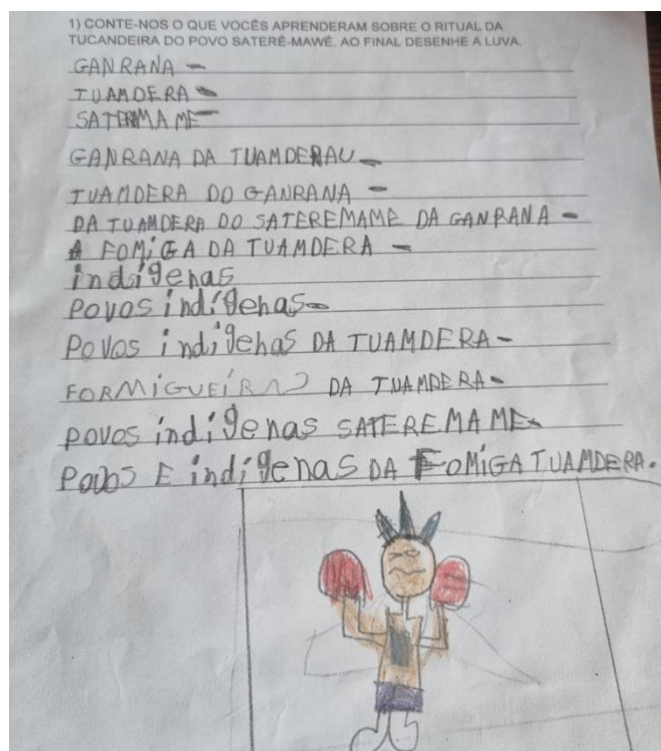 1) CONTE-NOS O QUE VOCÊS APRENDERAM SOBRE O RITUAL DA
TUCANDEIRA DO POVO SATERÉ-MAWÉ. AO FINAL DESENHE A LUVA.
GANRANA -
TUAMDERA -
SATERMAME -
GANRANA DA TUAMDERAU -
TUAMDERA DO GANRANA -
DA TUAMDERA DO SATEREMAME DA GANRANA -
A FOMiGA DA TUAMDERA -
indígenas
Povos indígenas -
Povos indígenas DA TUAMDERA -
FORMiGUEiRAO DA TUAMDERA -
povos indígenas SATEREMAME -
Povos E indígenas DA FOMiGA TUAMDERA.